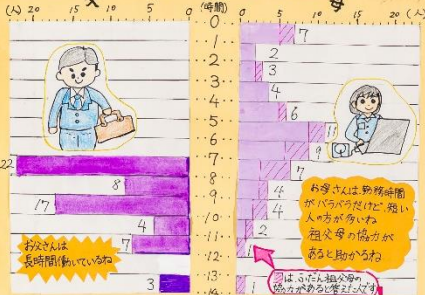 父
(人) 20 15 10 5 0
(時間)
母
0 5 10 15 20 (人)
0
1
2
3
4
5
6
7
8
9
10
11
12
13
14
22
8
17
4
7
3
7
2
3
4
6
11
9
7
4
4
2
1
1
お父さんは
長時間働いているね
お母さんは、勤務時間
がバラバラだけど、短い
人の方が多いね
祖父母の協力が
あると助かるね
は、ふだん祖父母の
協力があると答えた人です